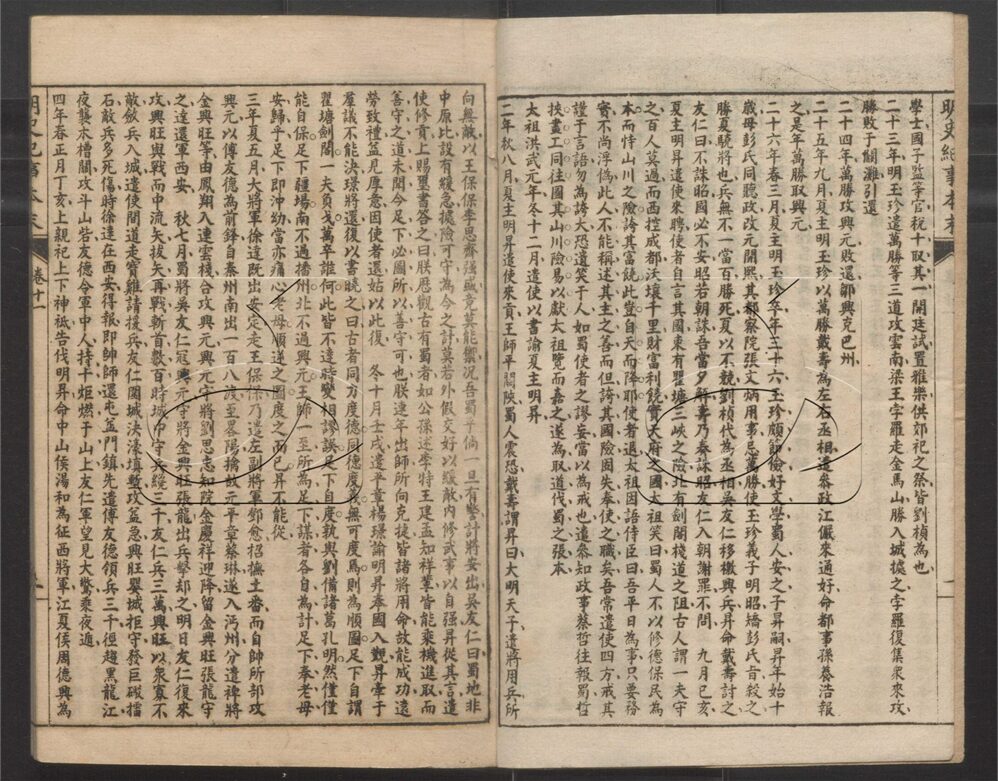 明史紀事本末
學士國子監等官稅十取其一開廷試置雅樂供郊祀之祭皆劉楨為也
二十三年明玉珍遣萬勝等三道攻雲南梁王孛羅走金馬山勝入城據之孛羅復集眾來攻
勝敗于關灘引還
二十四年萬勝攻興元敗還鄒興克巴州
二十五年九月夏主明玉珍以萬勝戴壽為左右丞相遣參政江儼來通好命都事孫養浩報
之是年萬勝取興元
二十六年春三月夏主明玉珍卒年三十六玉珍頗節儉好文學蜀人安之子昇嗣昇年始十
歲母彭氏同聽政改元開熙其都察院張文炳用事忌萬勝使玉珍義子明昭矯彭氏旨殺之
勝夏驍將也兵無不一當百勝死夏以不競劉楨代為丞相吳友仁移檄興兵昇命戴壽討之
友仁曰不誅昭國必不安昭若朝誅吾當夕解壽乃奏誅昭友仁入朝謝罪不問　九月己亥
夏主明昇遣使來聘使者自言其國東有瞿塘三峽之險北有劍閣棧道之阻古人謂一夫守
之百人莫過而西控成都沃壤千里財富利饒實天府之國太祖笑曰蜀人不以修德保民為
本而恃山川之險誇其富饒此豈自天而降耶使者退太祖因語侍臣曰吾平日為事只要務
實不尚浮偽此人不能稱述其主之善而但誇其國險固失奉使之職矣吾嘗遣使四方戒其
謹于言語勿為誇大恐遺笑于人如蜀使者之謬妄當以為戒也遣參知政事蔡哲往報蜀哲
挾畫工同往圖其山川險易以獻太祖覽而嘉之遂為取道伐蜀之張本
太祖洪武元年冬十二月遣使以書諭夏主明昇
二年秋八月夏主明昇遣使來貢王師平關陝蜀人震恐戴壽謂昇曰大明天子遣將用兵所
向無敵以王保保李思齊強盛竟莫能禦況吾蜀乎倘一旦有警計將安出吳友仁曰蜀地非
中原比設有緩急據險可守為今之計莫若外假交好以緩敵內修武事以自强昇從其言遣
使修貢上賜璽書答之曰朕歷觀古有蜀者如公孫述李特王建孟知祥輩皆能乘機進取而
善守之道未聞今足下必圖所以善守可也朕連年出師所向克捷皆諸將用命故能成功遠
勞致禮益見厚意因使者還姑以此復　冬十月壬戌遣平章楊璟諭明昇奉國入覲昇牽于
羣議不能決璟將還復以書曉之曰古者同力度德同德度義無可度焉則為順圖足下自謂
瞿塘劍閣一夫負戈萬卒誰何此皆不達時變相謬誤足下自度孰與劉備諸葛孔明然僅僅
能自保足下疆場南不過播州北不過興元王師一至所為足下謀者各自為計足下奉老母
安歸乎足下即沖幼當亦痛心老母順逆之圖度之而已昇不能從
三年夏五月大將軍徐達既出安定走王保保乃遣左副將軍鄧愈招撫土番而自帥所部攻
興元以傅友德為前鋒自秦州南出一百八渡至畧陽擒故元平章蔡琳遂入沔州分遣裨將
金興旺等由鳳翔入連雲棧合攻興元興元守將劉思忠知院金慶祥迎降留金興旺張龍守
之達還軍西安　秋七月蜀將吳友仁寇興元守將金興旺張龍出兵擊却之明日友仁復來
攻興旺與戰面中流矢拔矢再戰斬首數百時城中守兵纔三千友仁兵三萬興旺以眾寡不
敵斂兵入城遣使間道走寶雞請援兵友仁圍城決濠填塹攻益急興旺嬰城拒守發巨礟擂
石敵兵多死傷時徐達在西安得報即帥師還屯益門鎮先遣傅友德領兵三千徑趨黑龍江
夜襲木槽關攻斗山砦友德令軍中人持十炬燃于山上友仁軍望見大驚乘夜遁
四年春正月丁亥上親祀上下神祇告伐明昇命中山侯湯和為征西將軍江夏侯周德興為
明史紀事本末
卷十一